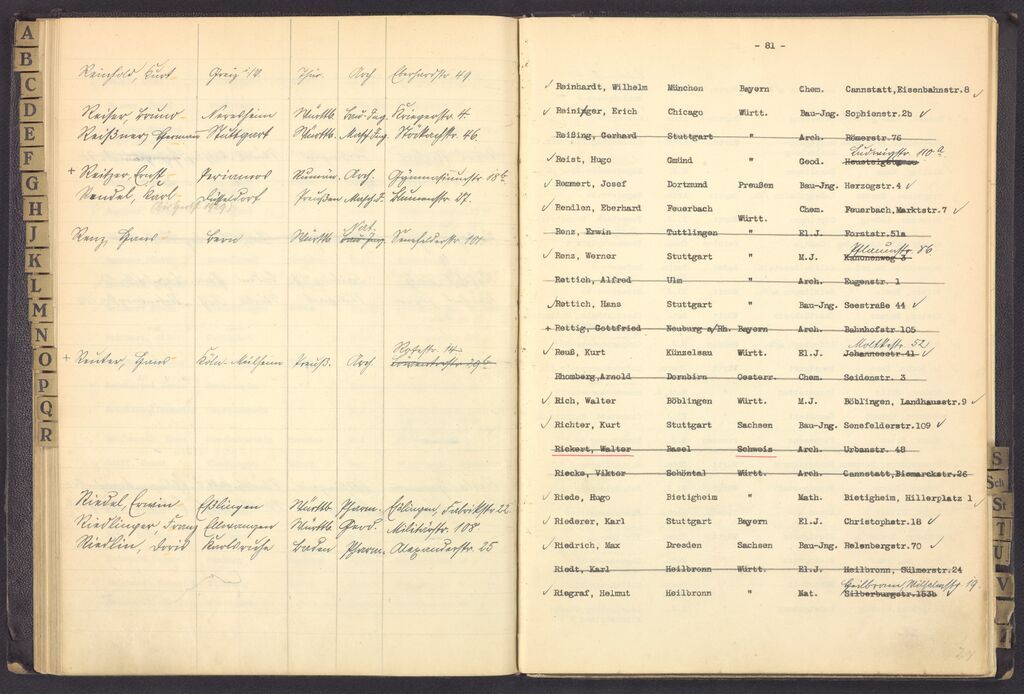 A
B
C
D
E
F
G
H
J
K
L
M
N
O
P
Q
R
Reinhold, Kurt Greiz i/V. Thür. Arch. Eberhardstr 49
Reiser Bruno Neresheim Württb. Bau-Ing. Kriegerstr 4.
Reißner, Herman Stuttgart Württb. Masch.Ing. Stöckachstr. 46
+ Reitzer, Ernst Perjamos Rumän. Arch. Gymnasiumstr 18b
Rendel, Karl Düsseldorf Preußen Masch.I. Blumenstr 27.
Nat.
Renz, Hans Bern Württb. Bau-Ing. Senefelderstr 101
Rotestr. 14
+ Reuter, Hans Köln-Mülheim Preuß. Arch.
Riedel, Erwin Eßlingen Württb. Pharm. Eßlingen, Fabrikstr 22
Riedlinger Franz Ellwangen Württb. Geod. Militärstr 108.
Riedlin, Doris Karlsruhe Baden Pharm. Alexanderstr. 25
- 81 -
✓ Reinhardt, Wilhelm München Bayern Chem. Cannstatt,Eisenbahnstr.8 ✓
✓ Reininger, Erich Chicago Württ. Bau-Jng. Sophienstr.2b ✓
Reißing, Gerhard Stuttgart " Arch. Römerstr.76
Ludwigstr 110a
✓ Reist, Hugo Gmünd " Geod.
✓ Remmert, Josef Dortmund Preußen Bau-Jng. Herzogstr.4 ✓
✓ Rendlen, Eberhard Feuerbach Württ. Chem. Feuerbach,Marktstr.7 ✓
Renz, Erwin Tuttlingen " El.J. Forststr.51a
Pflaumstr. 86
✓ Renz, Werner Stuttgart " M.J. Kanonenweg 3
Rettich, Alfred Ulm " Arch. Eugenstr. 1
✓ Rettich, Hans Stuttgart " Bau-Jng. Seestraße 44 ✓
+ Rettig, Gottfried Neuburg a/Rh. Bayern Arch. Bahnhofstr 105
Moltkestr. 52
✓ Reuß, Kurt Künzelsau Württ. El.J. Johannesstr 41 ✓
Rhomberg,Arnold Dornbirn Oesterr. Chem. Seidenstr. 3
✓ Rich, Walter Böblingen Württ. M.J. Böblingen, Landhausstr.9 ✓
✓ Richter, Kurt Stuttgart Sachsen Bau-Jng. Senefelderstr.109 ✓
Rickert, Walter Basel Schweiz Arch. Urbanstr. 48
Riecke, Viktor Schöntal Württ. Arch. Cannstatt,Bismarckstr.26
✓ Riede, Hugo Bietigheim " Math. Bietigheim, Hillerplatz 1
✓ Riederer, Karl Stuttgart Bayern El.J. Christophstr.18 ✓
✓ Riedrich, Max Dresden Sachsen Bau-Jng. Relenbergstr.70 ✓
Riedt, Karl Heilbronn Württ. El.J. Heilbronn, Sülmerstr.24
Heilbronn, Wilhelmstr 19.
✓ Riegraf, Helmut Heilbronn " Mat. Silberburgstr.163b ✓
S
Sch
St
T
U
V